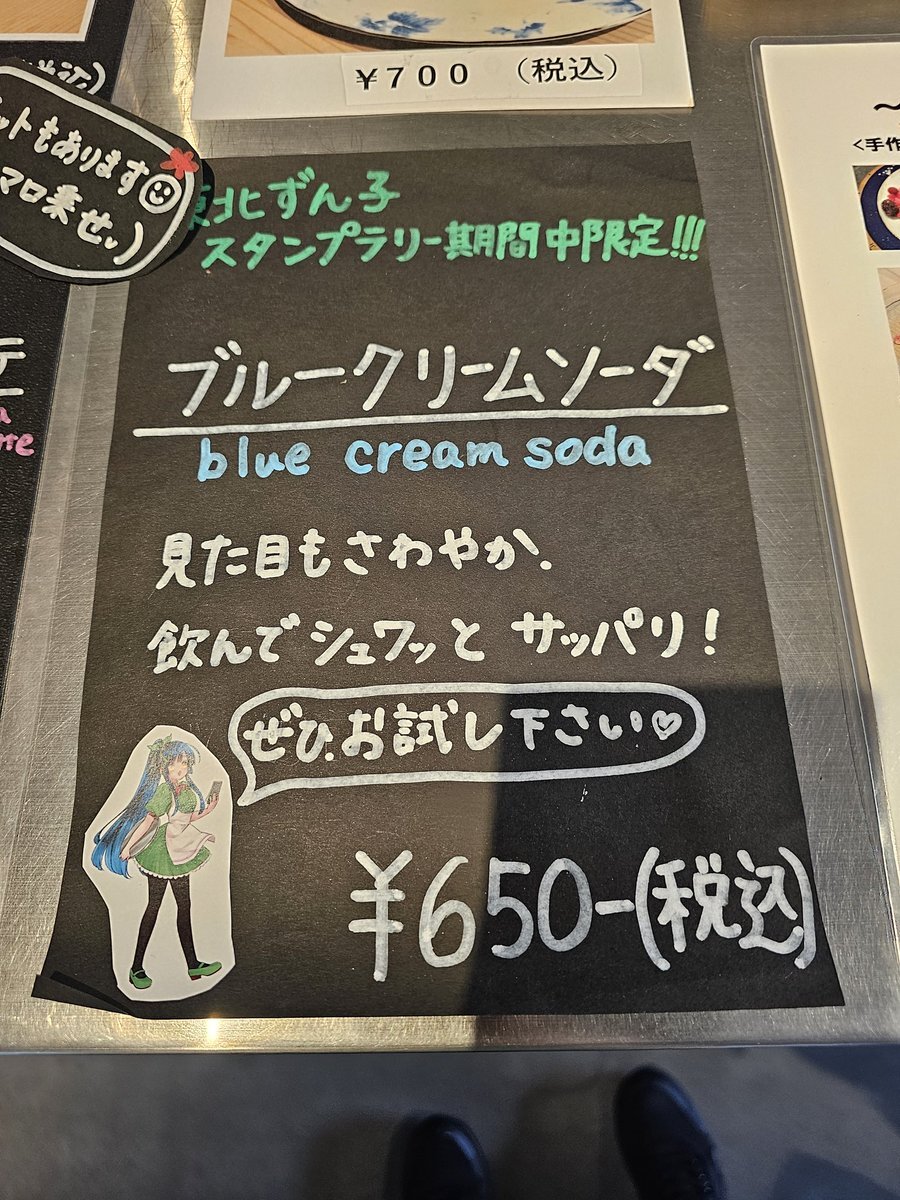 ¥700 (税込)
ットもあります
マロ乗せ♪)
<手作
東北ずん子
スタンプラリー期間中限定!!!
ブルークリームソーダ
blue cream soda
見た目もさわやか、
飲んでシュワッと サッパリ!
ぜひ、お試し下さい♡
¥650-(税込)